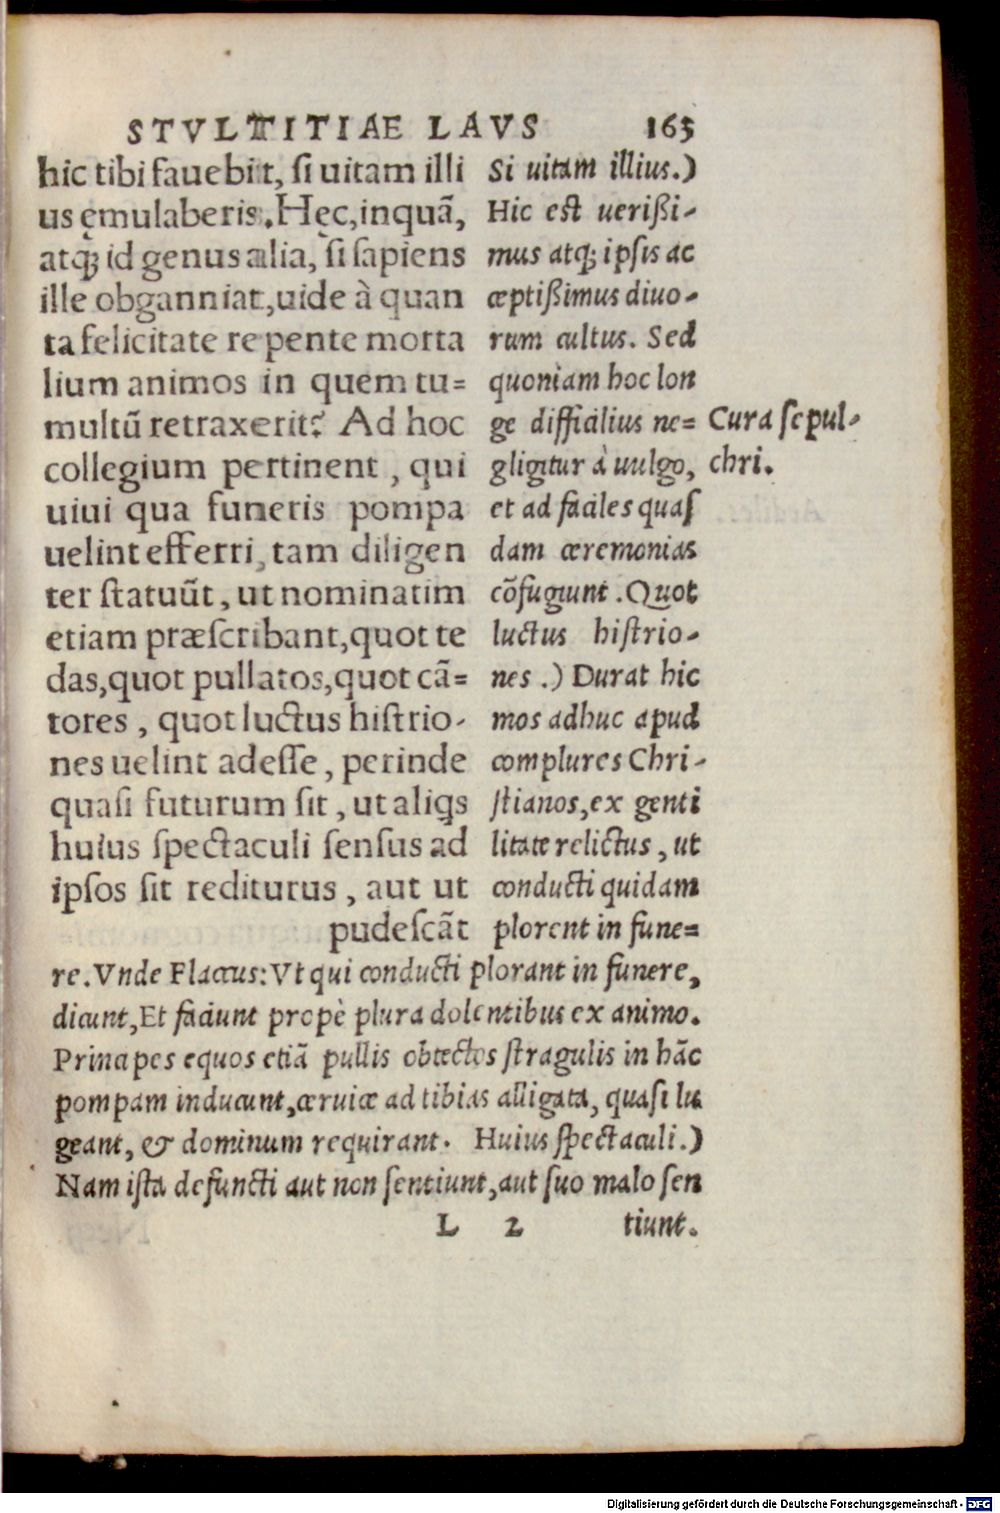 STVLTITIAE LAVS 165
hic tibi fauebit, ſi uitam illi
us ęmulaberis. Hęc, inquã,
atq; id genus alia, ſi ſapiens
ille obganniat, uide à quan
ta felicitate repente morta
lium animos in quem tu=
multũ retraxerit? Ad hoc
collegium pertinent, qui
uiui qua funeris pompa
uelint efferri, tam diligen
ter ſtatuũt, ut nominatim
etiam præſcribant, quot te
das, quot pullatos, quot cã=
tores, quot luctus hiſtrio-
nes uelint adeſſe, perinde
quaſi futurum ſit, ut aliqs
huius ſpectaculi ſenſus ad
ipſos ſit rediturus, aut ut
pudeſcãt
Si uitam illius.)
Hic eſt uerißi-
mus atq; ipſis ac
ceptißimus diuo-
rum cultus. Sed
quoniam hoc lon
ge difficilius ne=
gligitur à uulgo,
et ad faciles quaſ
dam ceremonias
cõfugiunt. Quot
luctus hiſtrio-
nes.) Durat hic
mos adhuc apud
complures Chri-
ſtianos, ex genti
litate relictus, ut
conducti quidam
plorent in fune=
re. Vnde Flaccus: Vt qui conducti plorant in funere,
dicunt, Et faciunt propè plura dolentibus ex animo.
Principes equos etiã pullis obtectos ſtragulis in hãc
pompam inducunt, ceruice ad tibias alligata, quaſi lu
geant, & dominum requirant. Huius ſpectaculi.)
Nam iſta defuncti aut non ſentiunt, aut ſuo malo ſen
L 2 tiunt.
Cura ſepul-
chri.
Digitalisierung gefördert durch die Deutsche Forschungsgemeinschaft - DFG